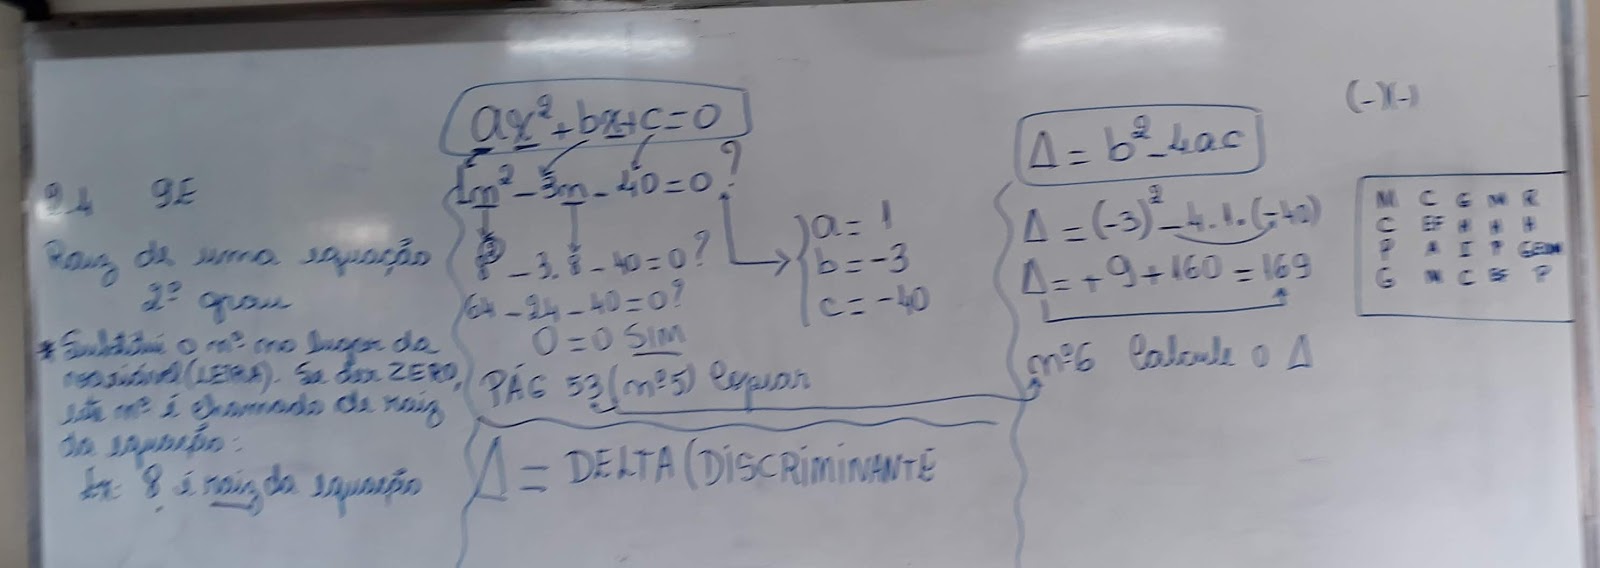 9.4 9E
Raiz de uma equação
2º grau
* Substitui o nº no lugar da
variável (LETRA). Se der ZERO,
este nº é chamado de raiz
da equação:
Ex: 8 é raiz da equação
ax²+bx+c=0
1m²-3m-40=0?
8²-3.8-40=0?
64-24-40=0?
0=0 SIM
PÁG 53 (nº5) Copiar
a=1
b=-3
c=-40
Δ= DELTA (DISCRIMINANTE
Δ=b²-4ac
Δ=(-3)²-4.1.(-40)
Δ=+9+160=169
nº6 Calcule o Δ
(-)(-)
M C G M R
C EF H H H
P A I P GEOM
G M C EF P